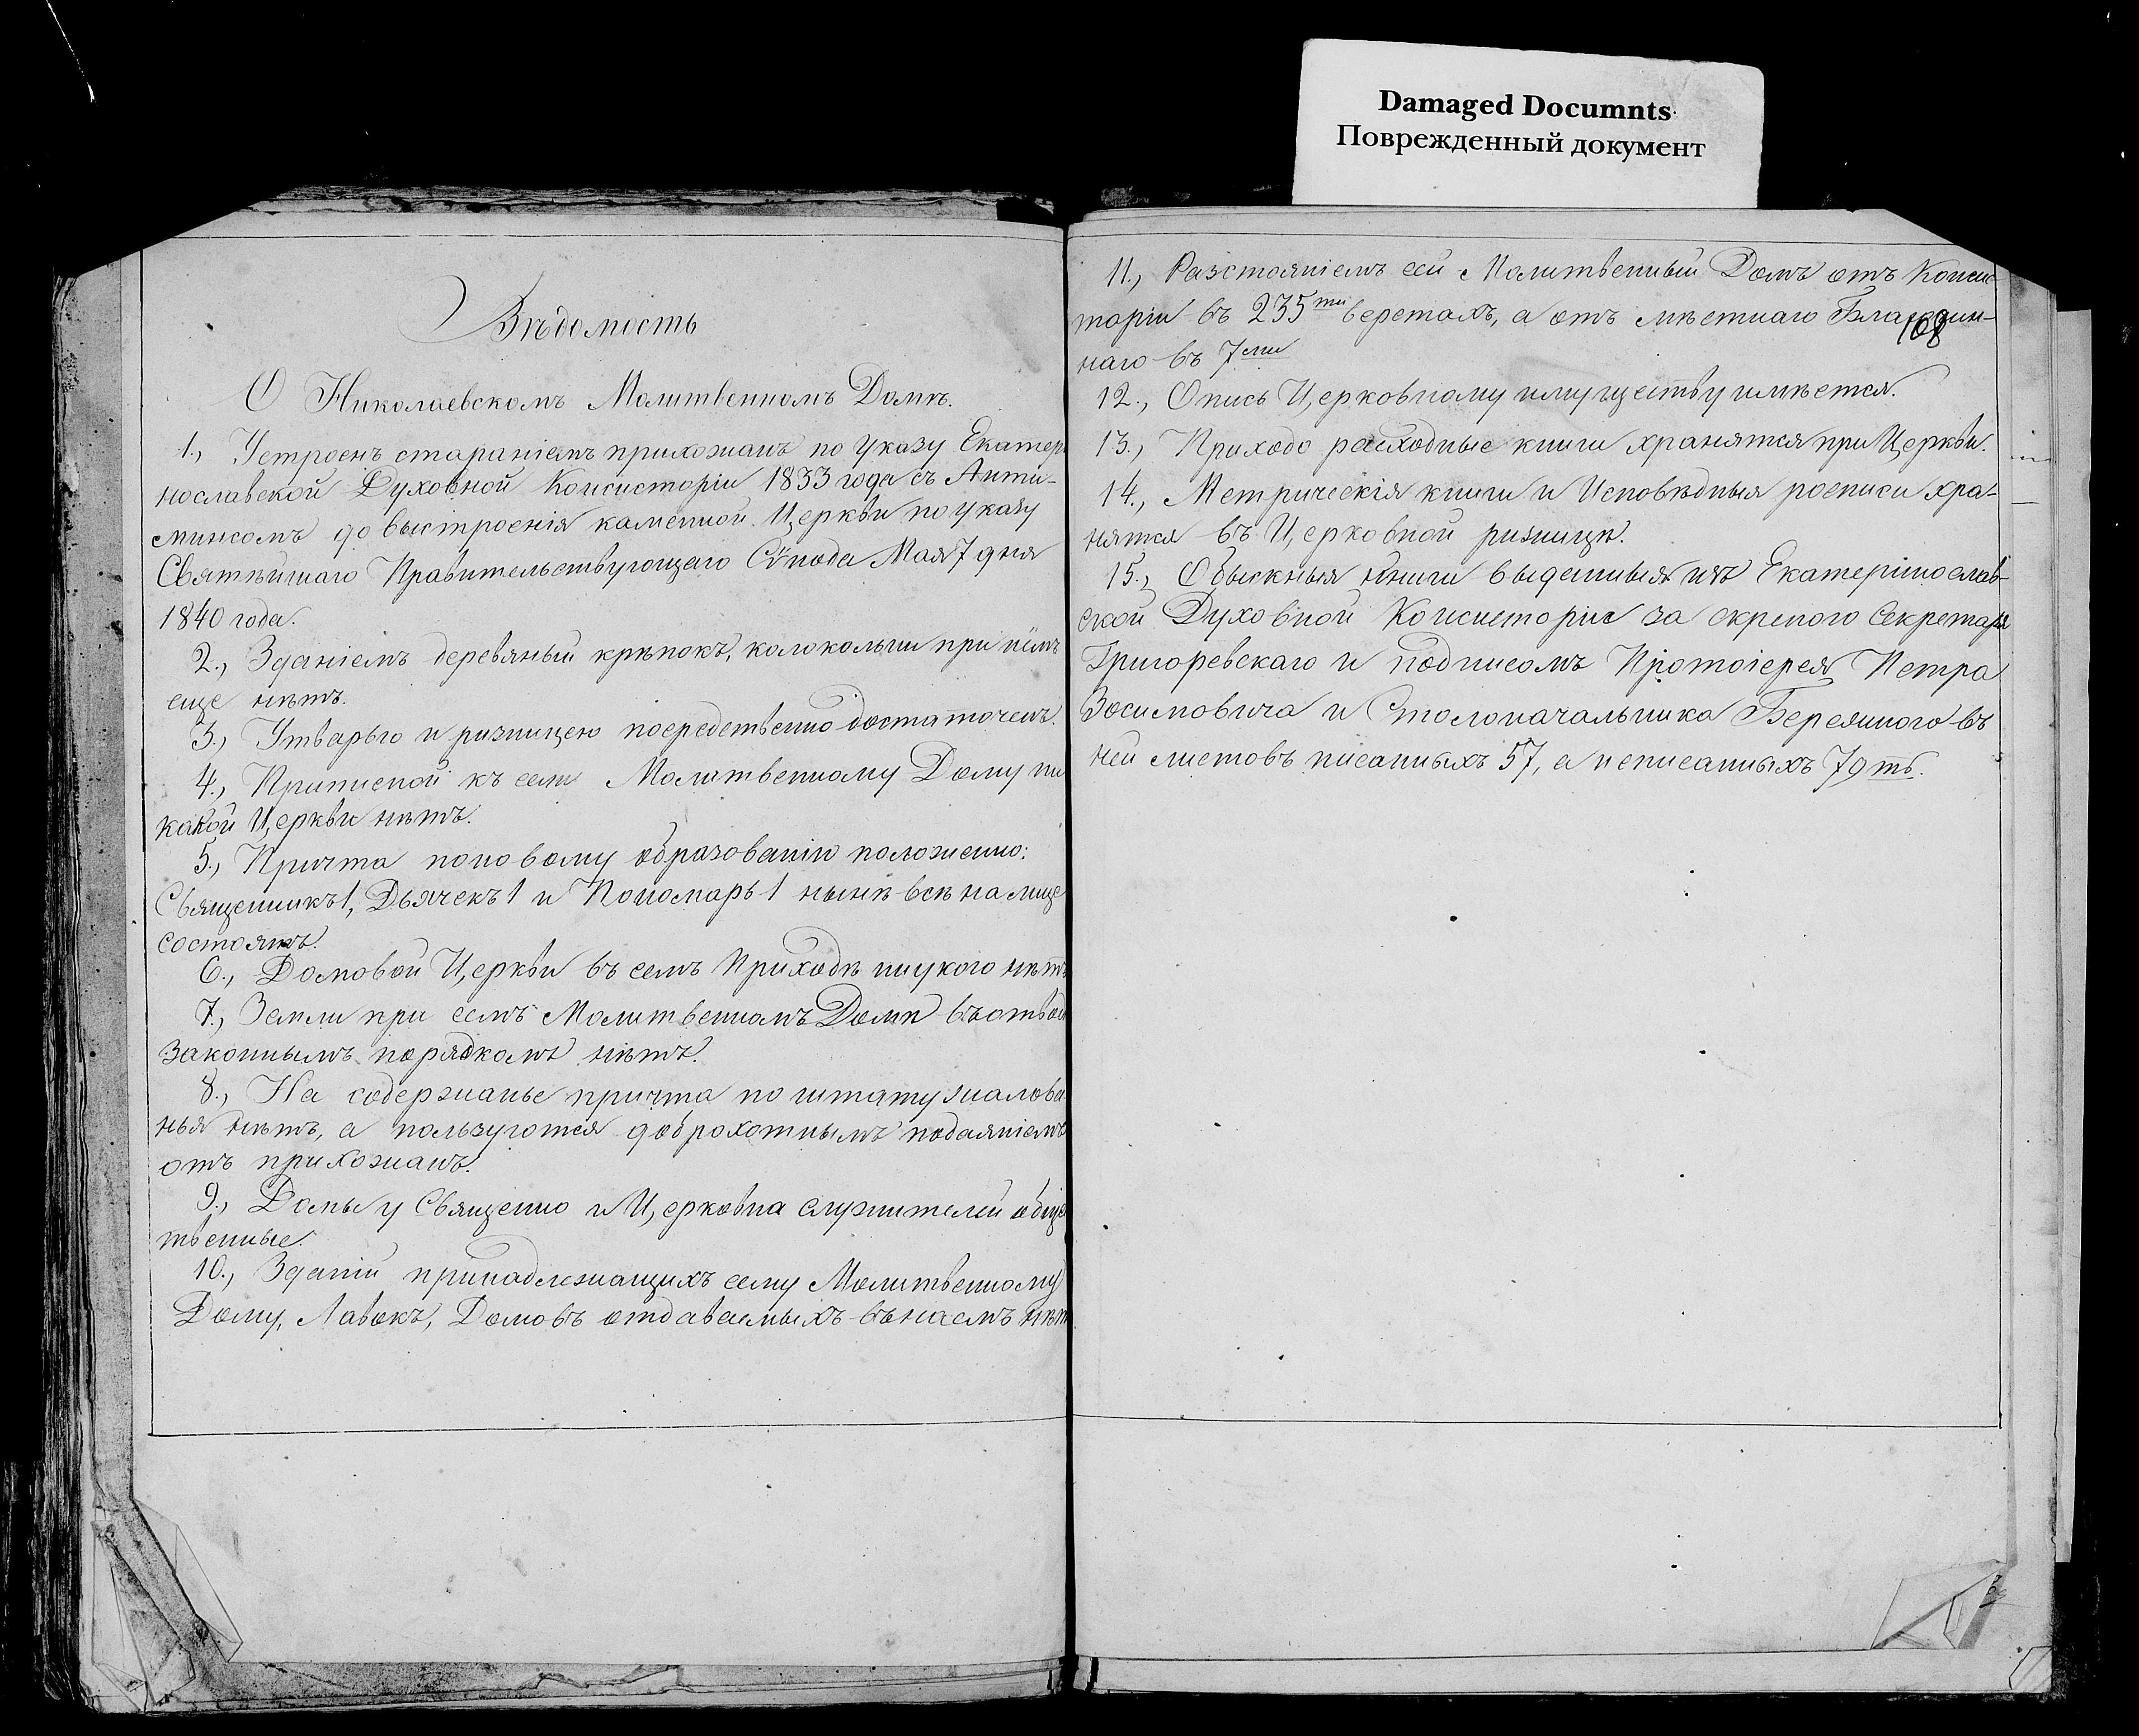 Damaged Documnts
Поврежденный документ
Вѣдомость
О Николаевскомъ Молитвенномъ Домѣ.
1., Устроенъ стараніемъ прихожанъ по указу Екатери
нославской Духовной Консисторіи 1833 года съ Анти-
минсомъ до выстроенія каменной Церкви по указу
Святѣйшаго Правительствующаго Сѵнода Мая 7 дня
1840 года.
2., Зданіемъ деревяный крѣпокъ, колокольни при нёмъ
еще нѣтъ.
3., Утварью и ризницею посредственно достаточенъ.
4., Приписной къ сему Молитвенному Дому ни
какой Церкви нѣтъ.
5., Причта поновому образованію положенно:
Священникъ 1, Дьячекъ 1 и Пономарь 1 нынѣ всѣ на лице
состоятъ.
6., Домовой Церкви въ семъ Приходѣ ни укого нѣтъ
7., Земли при семъ Молитвенномъ Домѣ въ отвод
законнымъ порядкомъ нѣтъ.
8., На содержанье причта по штату жалова
нья нѣтъ, а пользуются доброхотнымъ подаяніемъ
отъ прихожанъ.
9., Домы у Священно и Церковна служителей общес
твенные.
10., Зданій принадлежащихъ сему Молитвенному
Дому, Лавокъ, Домовъ отдаваемыхъ въ наемъ нѣт
11., Разстояніемъ сей Молитвенный Домъ отъ Консис-
торіи въ 235ти верстахъ, а отъ мѣстнаго Благочин-
108
наго въ 7ми
12., Опись Церковному имуществу имѣется.
13., Приходо расходные книги хранятся при Церкви.
14., Метрическія книги и Исповѣдныя росписи хра-
нятся въ Церковной ризницѣ.
15., Обыскныя Книги выданныя изъ Екатеринослав-
ской Духовной Консисторіи за скрепою Секретаря
Григоревскаго и подписомъ Протоіерея Петра
Зосимовича и Столоначальника Березиного въ
ней листовъ писанныхъ 57, а неписанныхъ 79ть.